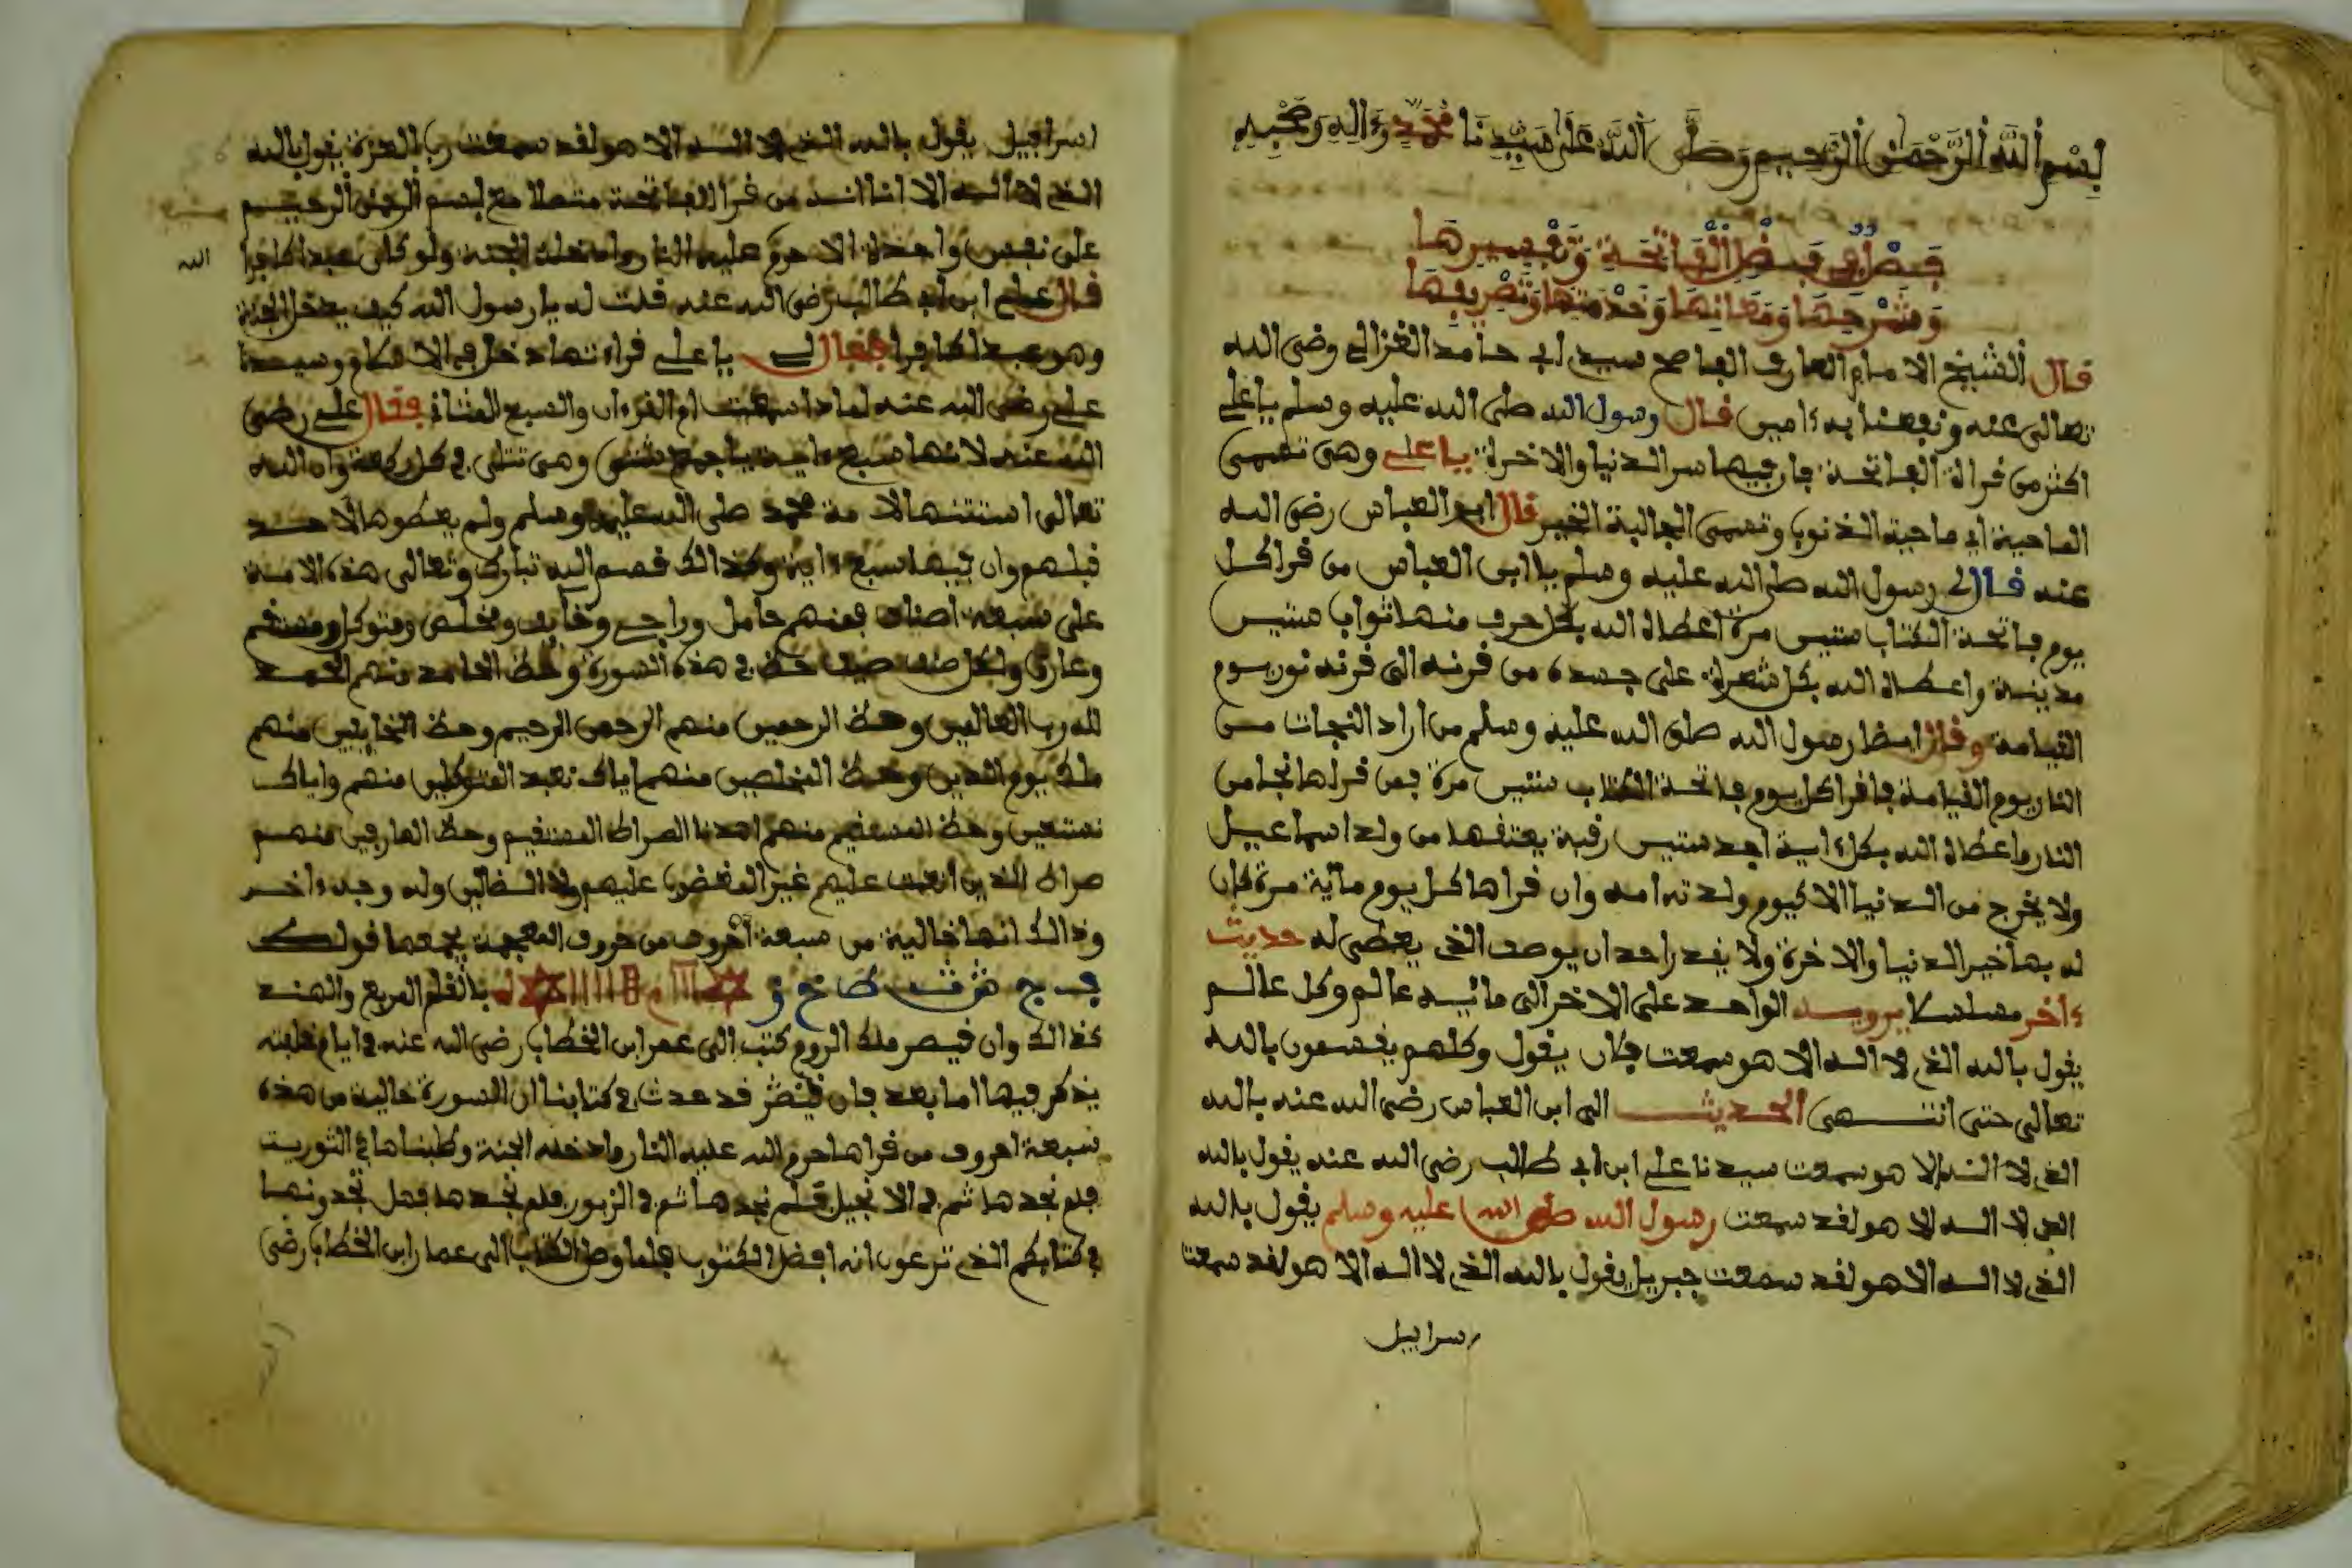 بسم الله الرحمن الرحيم وصلى الله على سيدنا محمد وءاله وصحبه
فصل في فضل الفاتحة وتفسيرها
وشرحها ومعانيها وخدمتها وتصريفها
قال الشيخ الامام العارف الفاضح سيد ابي حامد الغزالي رضى الله
تعالى عنه ونفعنا به ءامين قال رسول الله صلى الله عليه وسلم يا علي
اكثر من قراة الفاتحة فان فيها سر الدنيا والاخرة يا علي وهي تسمى
الماحية اي ماحية الذنوب وتسمى الجالبة الخير قال ابو العباس رضى الله
عنه قال لي رسول الله صلى الله عليه وسلم يا ابى العباس من قرا كل
يوم فاتحة الكتاب ستين مرة اعطاه الله بكل حرف منها ثواب ستين
مدينة واعطاه الله بكل شعرة على جسده من قرنه الى قرنه نور يوم
القيامة وقال ايضا رسول الله صلى الله عليه وسلم من اراد النجات من
النار يوم القيامة فاقرا كل يوم فاتحة الكتاب ستين مرة فمن قراها نجا من
النار واعطاه الله بكل ءاية اجد ستين رقبة يعتقها من ولد اسماعيل
ولا يخرج من الدنيا الا كيوم ولدته امه وان قراها كل يوم ماية مرة كان
له بها خير الدنيا والاخرة ولا يقدر احد ان يوصف الذي يعطى له حديث
ءاخر مسلسلا يرويه الواحد على الاخر الى مائيه عالم وكل عالم
يقول بالله الذي لا اله الا هو سمعت فلان يقول وكلهم يقسمون بالله
تعالى حتى انتهى الحديث الى ابن العباس رضى الله عنه بالله
الذي لا اله الا هو سمعت سيدنا علي ابن ابي طالب رضى الله عنه يقول بالله
الذي لا اله الا هو لقد سمعت رسول الله صلى الله عليه وسلم يقول بالله
الذي لا اله الا هو لقد سمعت جبريل يقول بالله الذي لا اله الا هو لقد سمعت
اسرافيل
اسرافيل يقول بالله الذي لا اله الا هو لقد سمعت رب العزة يقول بالله
الذي لا اله الا انا انه من قرا الفاتحة متصلا مع بسم الرحمن الرحيم
على نفس واحدة الا حرم عليه النار وادخله الجنة ولو كان عبدا كافرا
الله
قال علي ابن ابي طالب رضى الله عنه قلت له يا رسول الله كيف يدخل الجنة
وهو عبدا كافرا فقال لي يا علي قراءتها دخل في الاسلام وسيدنا
علي رضى الله عنه لماذا سميت ام القرءان والسبع المثاني فقال علي رضى
الله عنه لانها سبع ءاية باجمع شتى وهي تتلى في كل ركعة وان الله
تعالى استثنها لامة محمد صلى الله عليه وسلم ولم يعطوها لاحد
قبلهم وان فيها سبع ءاية وكذالك قسم اليه تبارك وتعالى هذه الامة
على سبعة اصناف فمنهم حامل وراجع وخايف ومخلص ومتوكل ومستقم
وعارف ولكل صنف حظ في هذه السورة وحظ الحامد منهم الحمد
لله رب العالمين وحظ الرحمين منهم الرحمن الرحيم وحظ الخايبين منهم
ملك يوم الدين وحظ المخلصين منهم اياك نعبد المتوكلين منهم واياك
نستعين وحظ المستقيم منهم اهدنا الصراط المستقيم وحظ العارفين منهم
صراط الذين انعمت عليهم غير المغضوب عليهم ولا الضالين وله وجه ءاخر
وذالك انها خالية من سبعة احروف من حروف المعجمة يجمعها قولك
ف ج ش ث ظ خ ز بالقلم المربع والهند
كذالك وان قيصر ملك الروم كتب الى عمر ابن الخطاب رضى الله عنه في ايام خلافته
يذكر فيها اما بعد فان قيصر قد حدث في كتابنا ان السورة خالية من هذه
سبعة احروف من قراها حرم الله عليه النار وادخله الجنة وطلبناها في التوريت
فلم نجدها ثم في الانجيل فلم نجدها ثم في الزبور فلم نجدها فهل تجدونها
في كتابكم الذي تزعون انه افضل الكتوب فلما وصل الكتاب الى عمار ابن الخطاب رضى